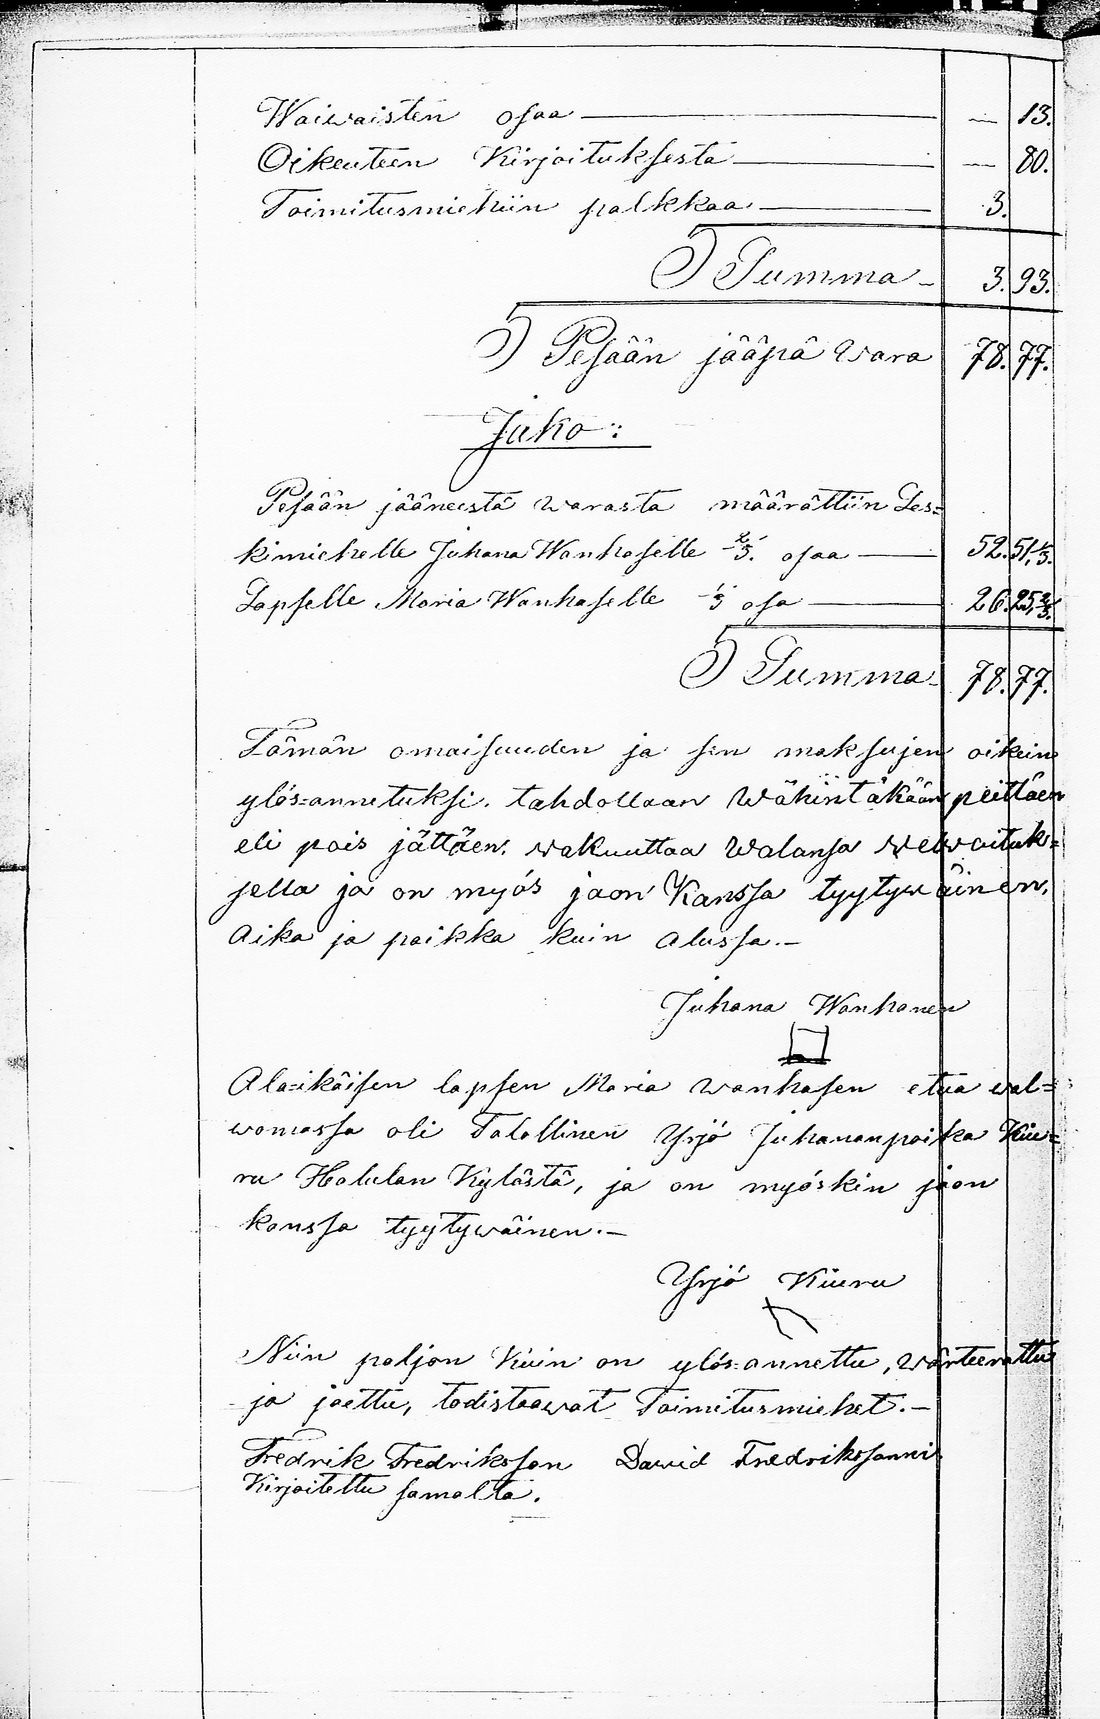 Waiwaisten osaa — — 13.
Oikeuteen Kirjoituksesta — — 80.
Toimitusmiehiin palkkaa — 3.
Summa – 3. 93.
Pesään jääpä Wara 78. 77.
Jako:
Pesään jääneestä warasta määrättiin Les=
kimiehelle Juhana Wanhaselle 2/3. osaa — 52. 51,1/3.
Lapselle Maria Wanhaselle 1/3 osa — 26. 25,2/3.
Summa – 78. 77.
Tämän omaisuuden ja sen maksujen oikein
ylös=annetuksi. tahdollaan Wähintäkään peittäen
eli pois jättäen. wakuuttaa Walansa welwoituk=
sella ja on myös jaon Kanssa tyytywäinen.
Aika ja paikka kuin alussa.–
Juhana Wanhanen
Ala=ikäisen lapsen Maria wanhasen etua wal=
womassa oli Talollinen Yrjö Juhananpoika Kiie=
ru Halulan Kylästä, ja on myöskin jaon
kanssa tyytywäinen.–
Yrjö Kiieru
Niin paljon Kuin on ylös=annettu, wärteerattu
ja jaettu, todistaawat Toimitusmiehet.–
Fredrik Fredriksson Dawid Fredrikssonni
Kirjoitettu samalta.